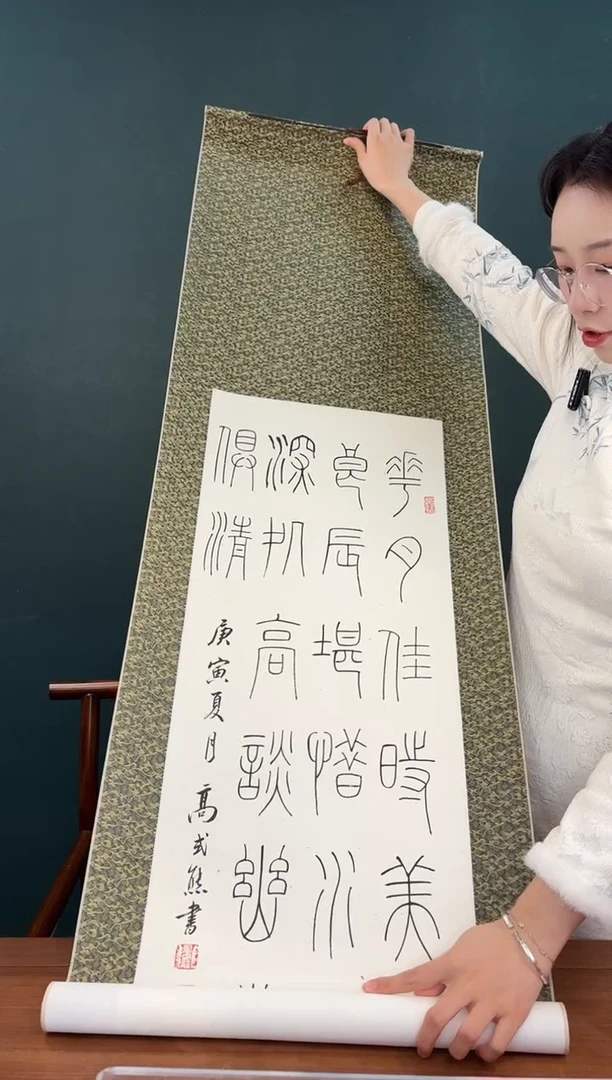 華月佳時美
良辰堪惜水
深高談幽
俱清
庚寅夏月高式熊書